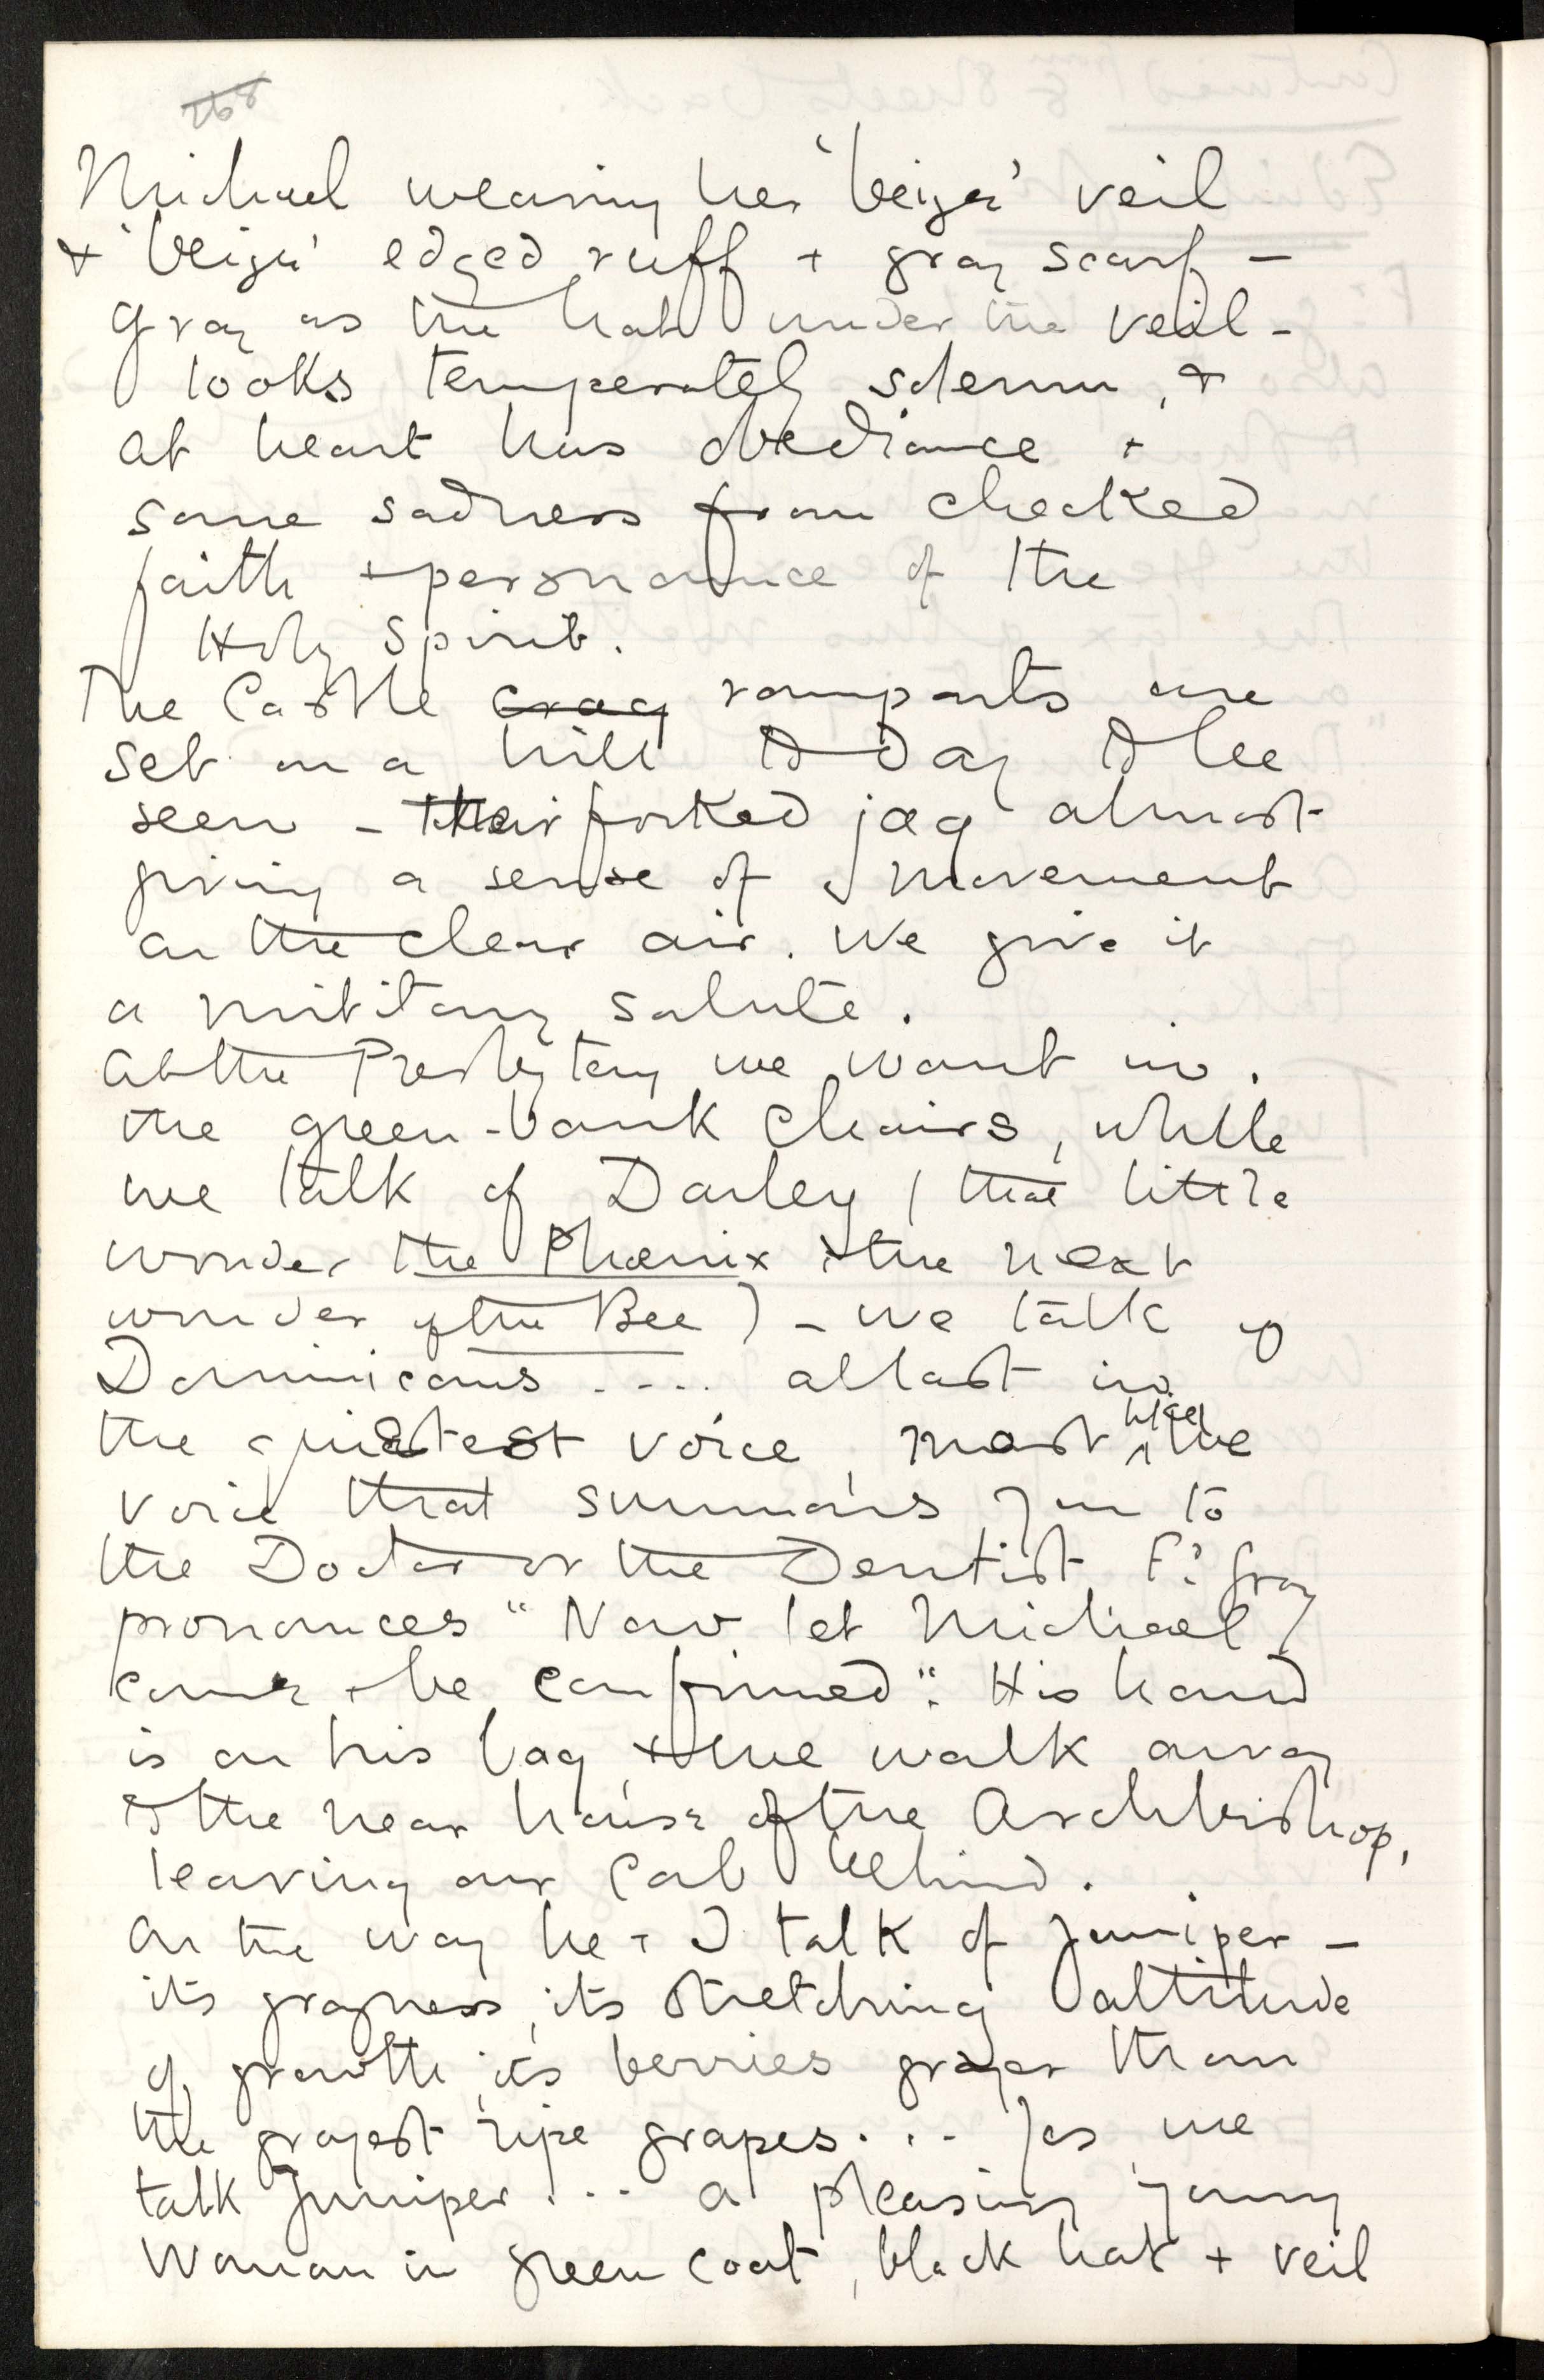 268
Michael wearing her 'beige' veil
+ 'beige' edged ruff + gray scarf –
gray as the hat under the veil –
looks temperately solemn, +
at heart has obedience +
some sadness from checked
faith + of the
Holy Spirit.
The Castle crag ramparts are
set on a hill to day to be
seen – their forked jag almost
giving a sense of movement
on the clear air. We give it
a military salute.
At the Presbytery we wait in
the green-bank chairs, while
we talk of Darley (that little
wonder the Phœnix + the next
wonder of the Bee) – we talk of
Dominicans .... at last in
the quietest voice, most like the
voice that summons you to
the Doctor or the Dentist Fr Gray
pronounces "Now let Michael
come + be confirmed". His hand
is on his bag, + we walk away
to the near house of the Archbishop,
leaving our cab behind.
On the way he + I talk of juniper –
its grayness, its stretching attitude
of growth, its berries grayer than
the grayest ripe grapes... Yes we
talk Juniper... a pleasing young
Woman in green coat, black hat + veil